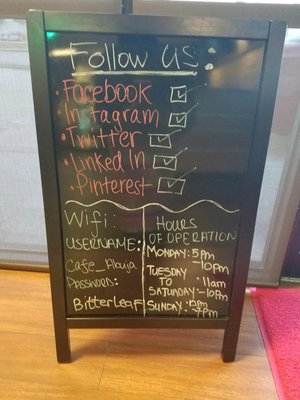 Follow US
• Facebook
• Instagram
• Twitter
• Linked In
• Pinterest
Wifi:
USERNAME:
Cafe_Abuja
PASSWORD:
BitterLeaf
HOURS
OF OPERATION
MONDAY: 5pm
-10pm
TUESDAY
TO
11am
SATURDAY: -10pm
SUNDAY: 12pm
-7pm